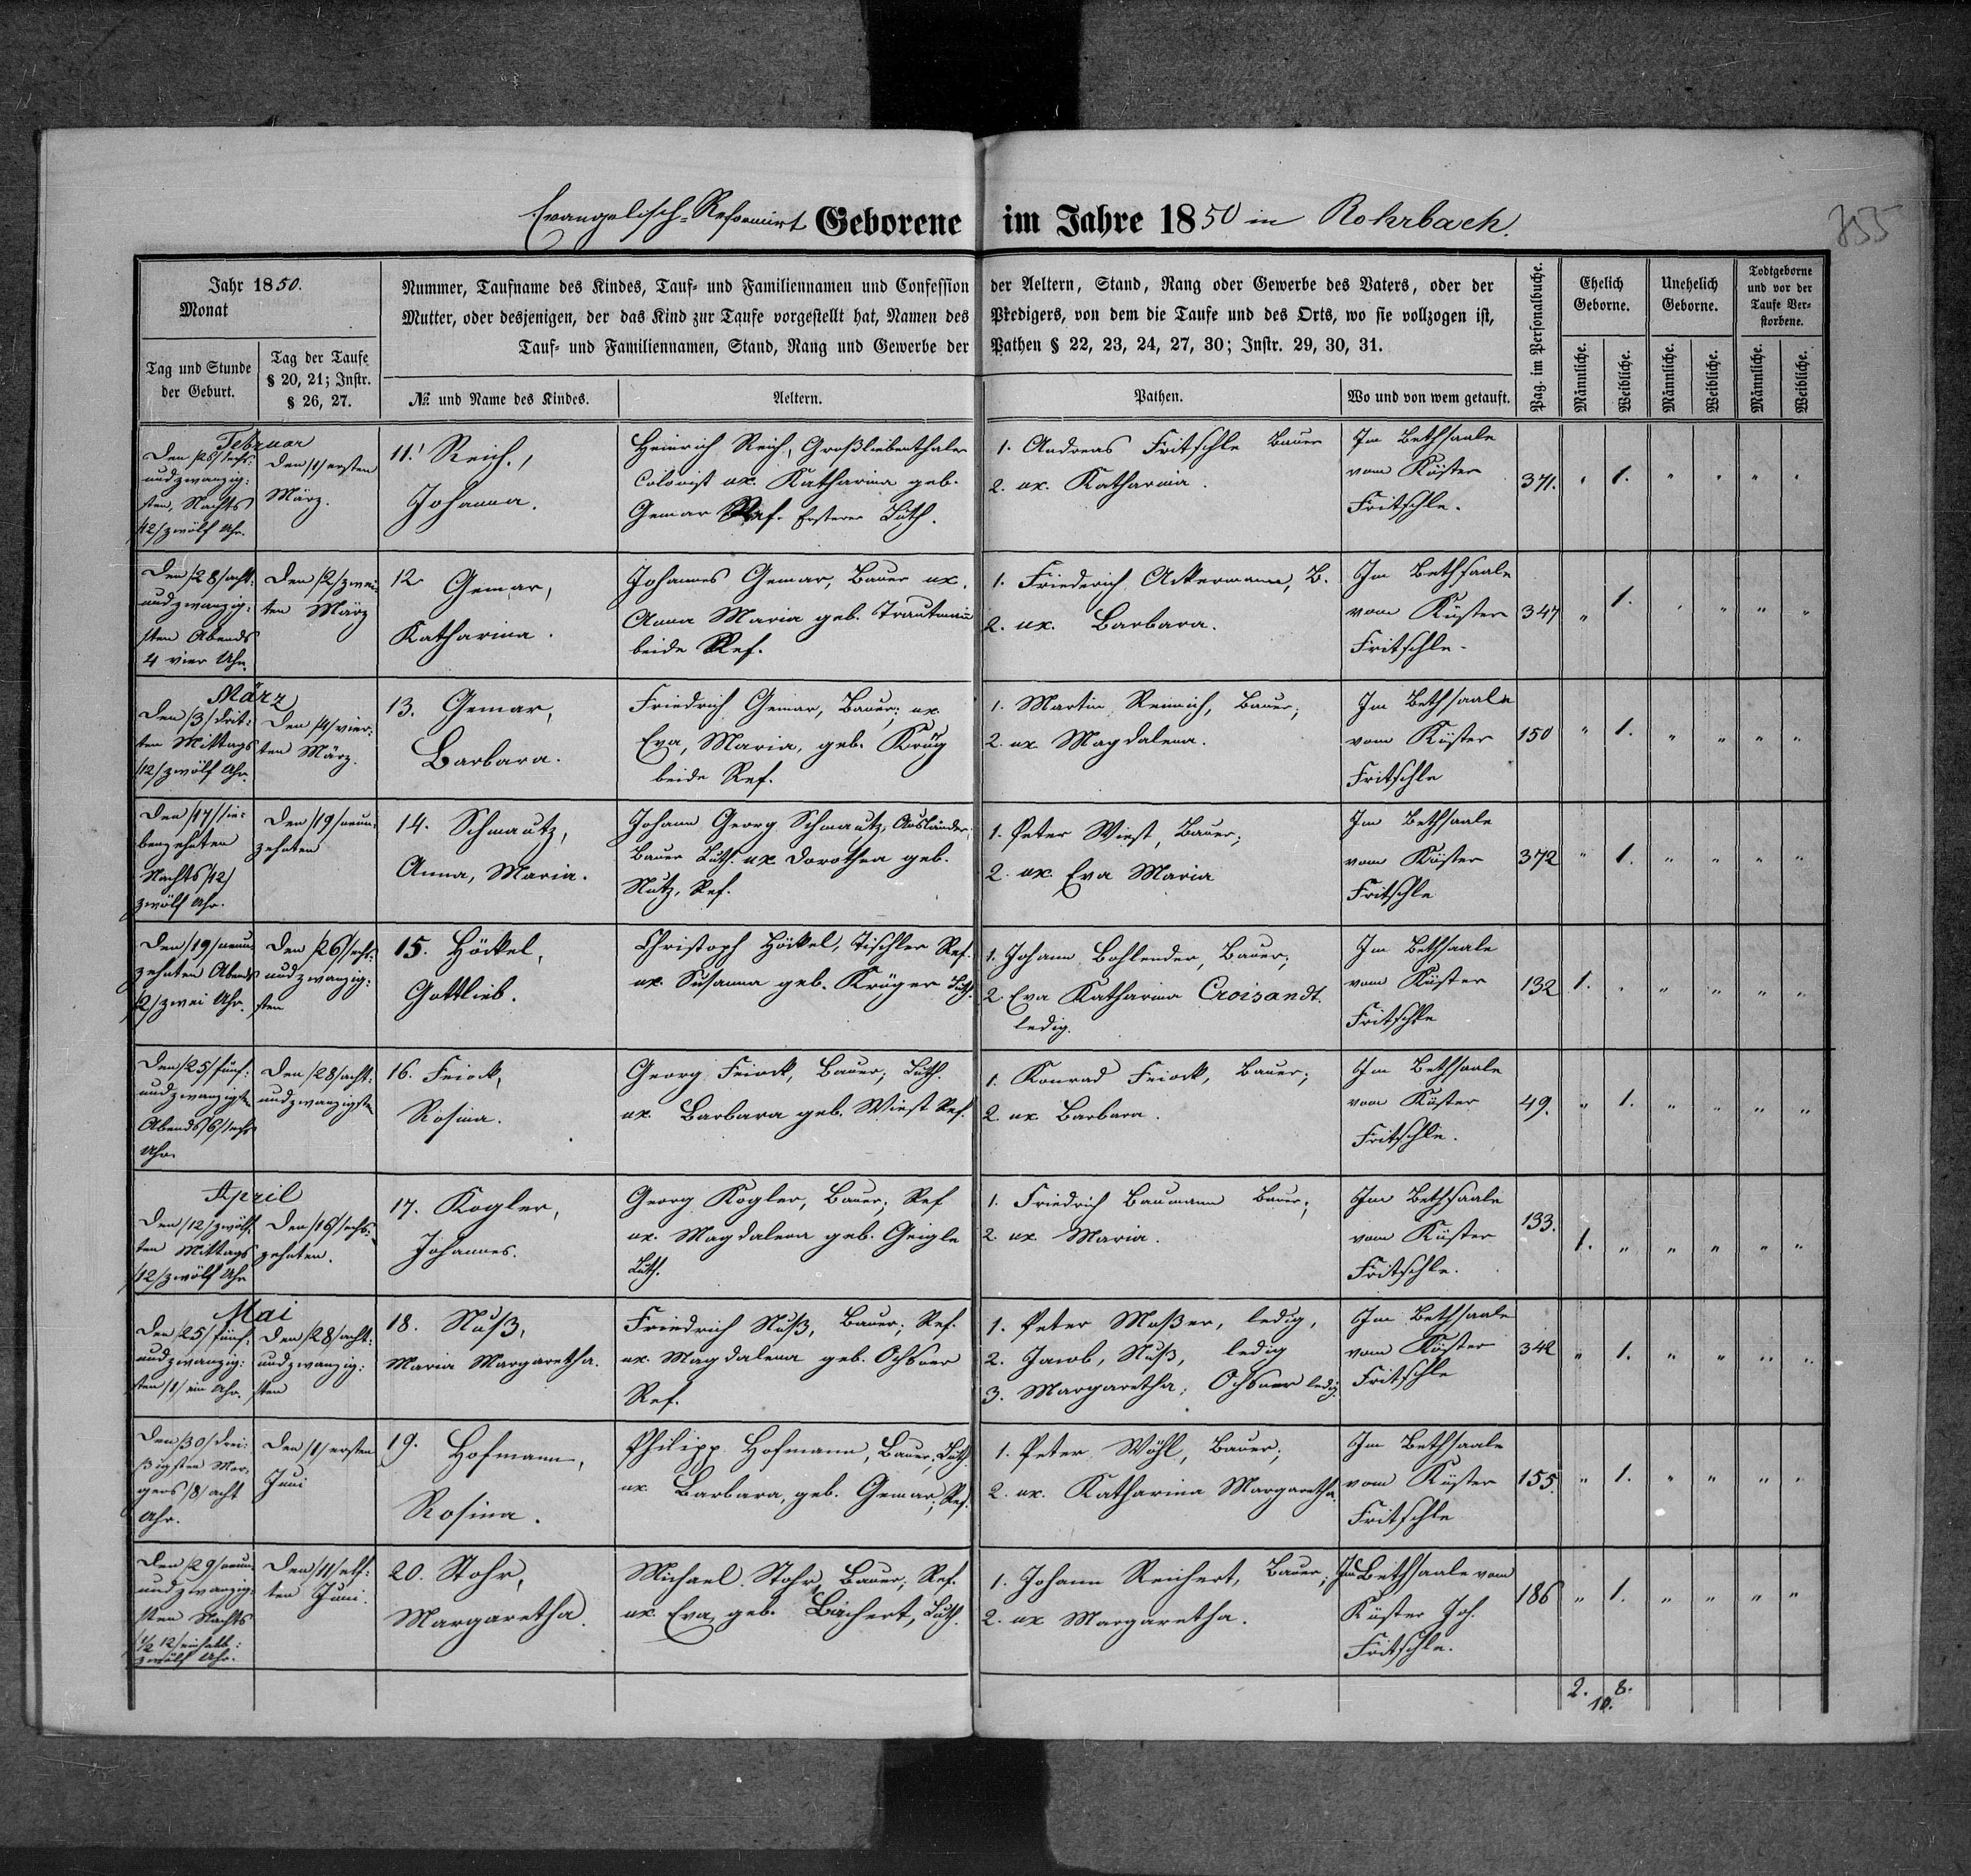 Evangelisch-Reformirt Geborene im Jahre 1850 in Rohrbach.
355
Jahr 1850.
Monat
Tag und Stunde der Geburt.
Tag der Taufe § 20, 21; Instr. § 26, 27.
Nummer, Taufname des Kindes, Tauf- und Familiennamen und Confession der Aeltern, Stand, Rang oder Gewerbe des Vaters, oder der
Mutter, oder desjenigen, der das Kind zur Taufe vorgestellt hat, Namen des Predigers, von dem die Taufe und des Orts, wo sie vollzogen ist,
Tauf- und Familiennamen, Stand, Rang und Gewerbe der Pathen § 22, 23, 24, 27, 30; Instr. 29, 30, 31.
№ und Name des Kindes.
Aeltern.
Pathen.
Wo und von wem getauft.
Pag. im Personalbuche.
Ehelich Geborne.
Unehelich Geborne.
Todtgeborne und vor der Taufe Verstorbene.
Männliche. Weibliche. Männliche. Weibliche. Männliche. Weibliche.
Februar
Den /26/ sechs-
und zwanzig-
sten, Nachts
/12/ zwölf Uhr.
Den /1/ ersten
März.
11. Reich,
Johanna.
Heinrich Reich, Großliebenthaler
Colonist ux. Katharina geb.
Gemar Ref. Ersterer Luth.
1. Andreas Fritschle Bauer
2. ux. Katharina.
Im Bethsaale
vom Küster
Fritschle.
371. " 1. " " " "
Den /28/ acht-
und zwanzig-
sten Abends
4 vier Uhr.
Den /2/ zwei-
ten März
12 Gemar,
Katharina.
Johannes Gemar, Bauer ux.
Anna Maria geb. Trautmann
beide Ref.
1. Friederich Ackermann, B.
2. ux. Barbara.
Im Bethsaale
vom Küster
Fritschle.
347 " 1. " " " "
März
Den /3/ drit-
ten Mittags
/12/ zwölf Uhr.
Den /4/ vier-
ten März.
13. Gemar,
Barbara.
Friedrich Gemar, Bauer; ux
Eva, Maria, geb. Krug
beide Ref.
1. Martin Reinich, Bauer;
2. ux Magdalena.
Im Bethsaale
vom Küster
Fritschle
150 " 1. " " " "
Den /17/ sie-
benzehnten
Nachts /12/
zwölf Uhr.
Den /19/ neun-
zehnten
14. Schmautz,
Anna, Maria.
Johann Georg Schmautz, Ausländer,
Bauer Luth. ux. Dorothea geb.
Nutz, Ref.
1. Peter Wiest, Bauer;
2. ux. Eva Maria
Im Bethsaale
vom Küster
Fritschle
372 " 1. " " " "
Den /19/ neun-
zehnten Abends
/2/ zwei Uhr.
Den /26/ sechs-
und zwanzig-
sten
15. Höckel,
Gottlieb.
Christoph Höckel, Tischler Ref.
ux. Susanna geb. Krüger Luth.
1. Johann Bohlender, Bauer;
2. Eva Katharina Croisandt.
ledig.
Im Bethsaale
vom Küster
Fritschle
132 1. " " " " "
Den /25/ fünf-
und zwanzigsten
Abends /6/ sechs
Uhr.
Den /28/ acht-
und zwanzigsten
16. Feiock,
Rosina.
Georg Feiock, Bauer; Luth.
ux. Barbara geb. Wiest Ref.
1. Konrad Feiock, Bauer;
2. ux Barbara.
Im Bethsaale
vom Küster
Fritschle.
49. " 1. " " " "
April
Den /12/ zwölf-
ten Mittags
/12/ zwölf Uhr
Den /16/ sechs-
zehnten.
17. Kogler,
Johannes.
Georg Kogler, Bauer; Ref
ux. Magdalena geb. Geigle
Luth.
1. Friedrich Baumann Bauer;
2. ux Maria.
Im Bethsaale
vom Küster
Fritschle.
133. 1. " " " " "
Mai
Den /25/ fünf-
und zwanzig-
sten /1/ ein Uhr.
Den /28/ acht-
und zwanzig-
sten
18. Nuß,
Maria Margaretha.
Friedrich Nuß, Bauer; Ref.
ux. Magdalena geb. Ochsner
Ref.
1. Peter Moßer, ledig,
2. Jacob, Nuß, ledig
3. Margaretha, Ochsner ledig.
Im Bethsaale
vom Küster
Fritschle
342 " 1. " " " "
Den /30/ drei-
ßigsten Mor-
gens /8/ acht
Uhr.
Den /1/ ersten
Juni
19. Hofmann,
Rosina.
Philipp Hofmann, Bauer, Luth.
ux Barbara, geb. Gemar, Ref.
1. Peter Wöhl, Bauer;
2. ux. Katharina Margaretha.
Im Bethsaale
vom Küster
Fritschle
155. " 1. " " " "
Den /29/ neun-
und zwanzig-
sten Nachts
1/2 12/ einhalb-
zwölf Uhr.
Den /11/ elf-
ten Juni.
20. Stohr,
Margaretha.
Michael Stohr, Bauer; Ref.
ux. Eva, geb. Bächert, Luth.
1. Johann Reichert, Bauer;
2. ux Margaretha.
Im Bethsaale vom
Küster Joh.
Fritschle.
186 " 1. " " " "
2. 8.
10.